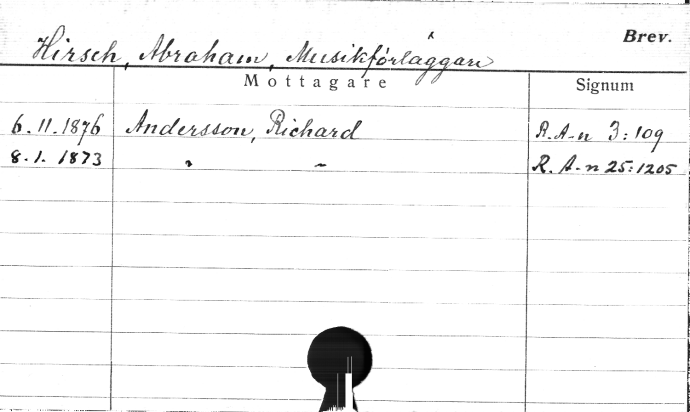 Brev.
Hirsch, Abraham, Musikförläggare
Mottagare Signum
6.11.1876 Andersson, Richard R. A-n 3:109
8.1.1873 " " R. A-n 25:1205